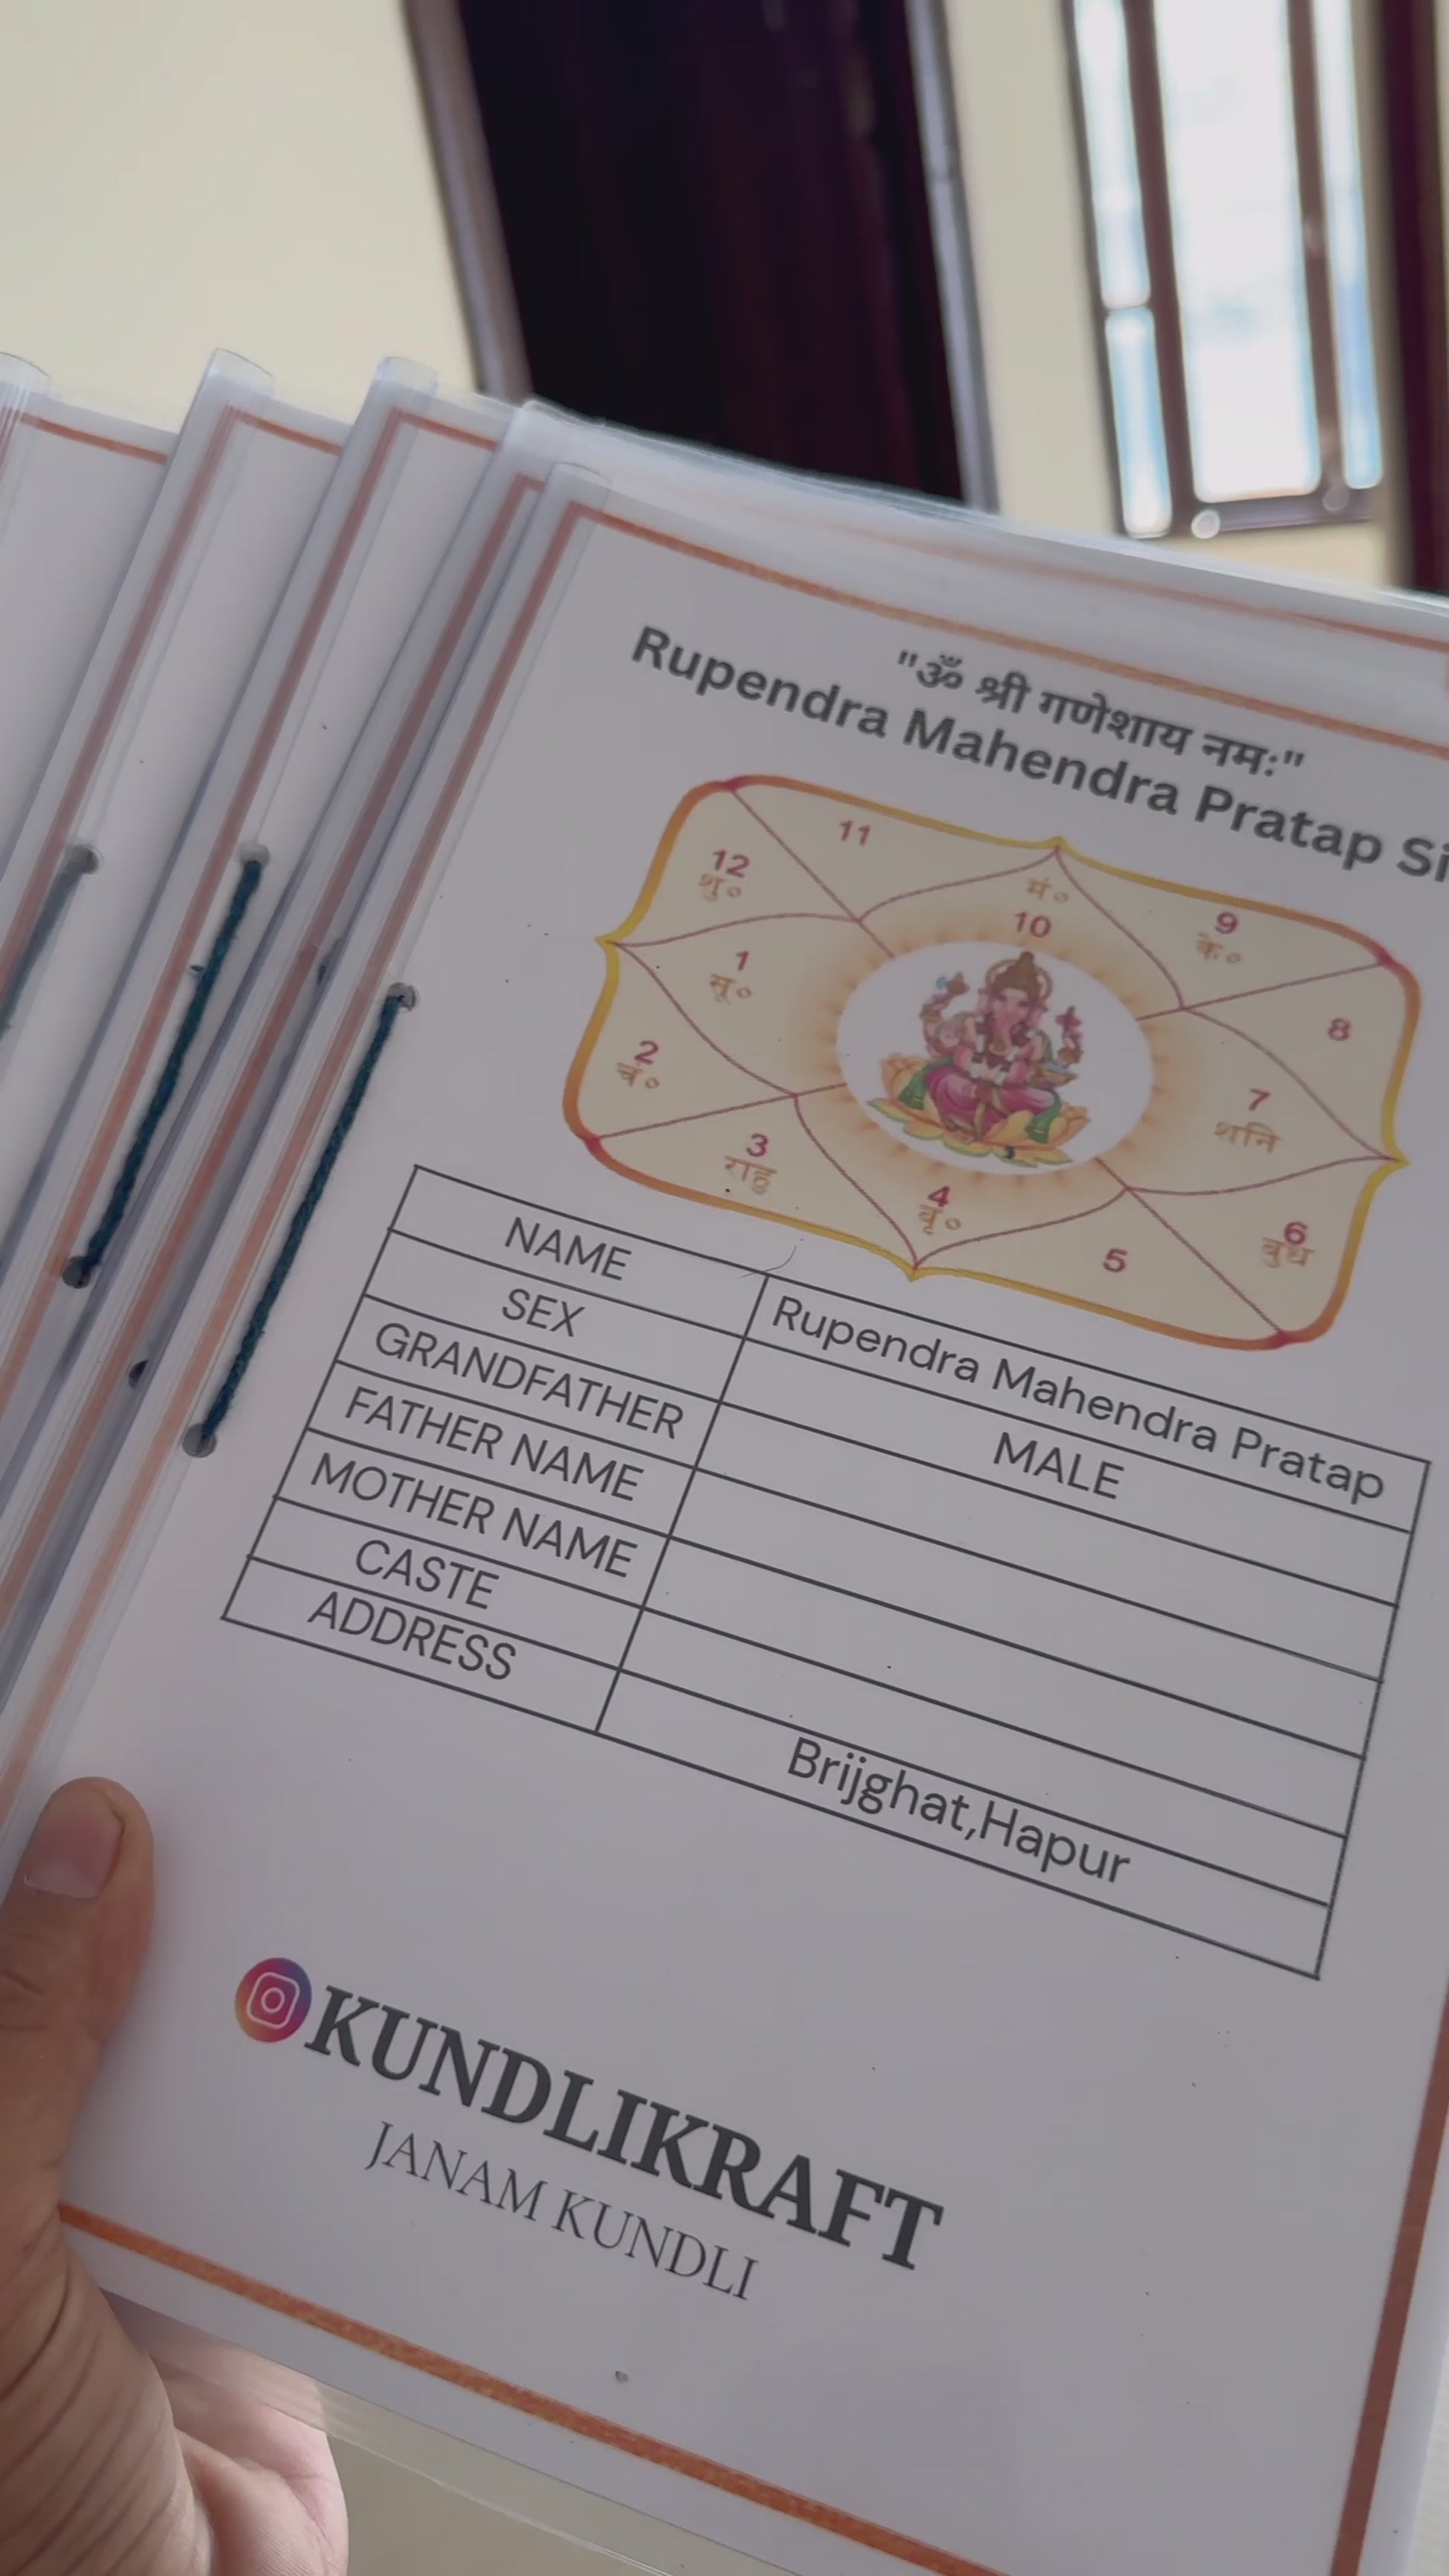 "ॐ श्री गणेशाय नमः"
Rupendra Mahendra Pratap Si
11
12
शु०
मं०
10
9
के०
1
सू०
8
2
चं०
7
शनि
3
राहु
4
बृ०
5
6
बुध
NAME Rupendra Mahendra Pratap
SEX MALE
GRANDFATHER
FATHER NAME
MOTHER NAME
CASTE
ADDRESS Brijghat,Hapur
KUNDLIKRAFT
JANAM KUNDLI